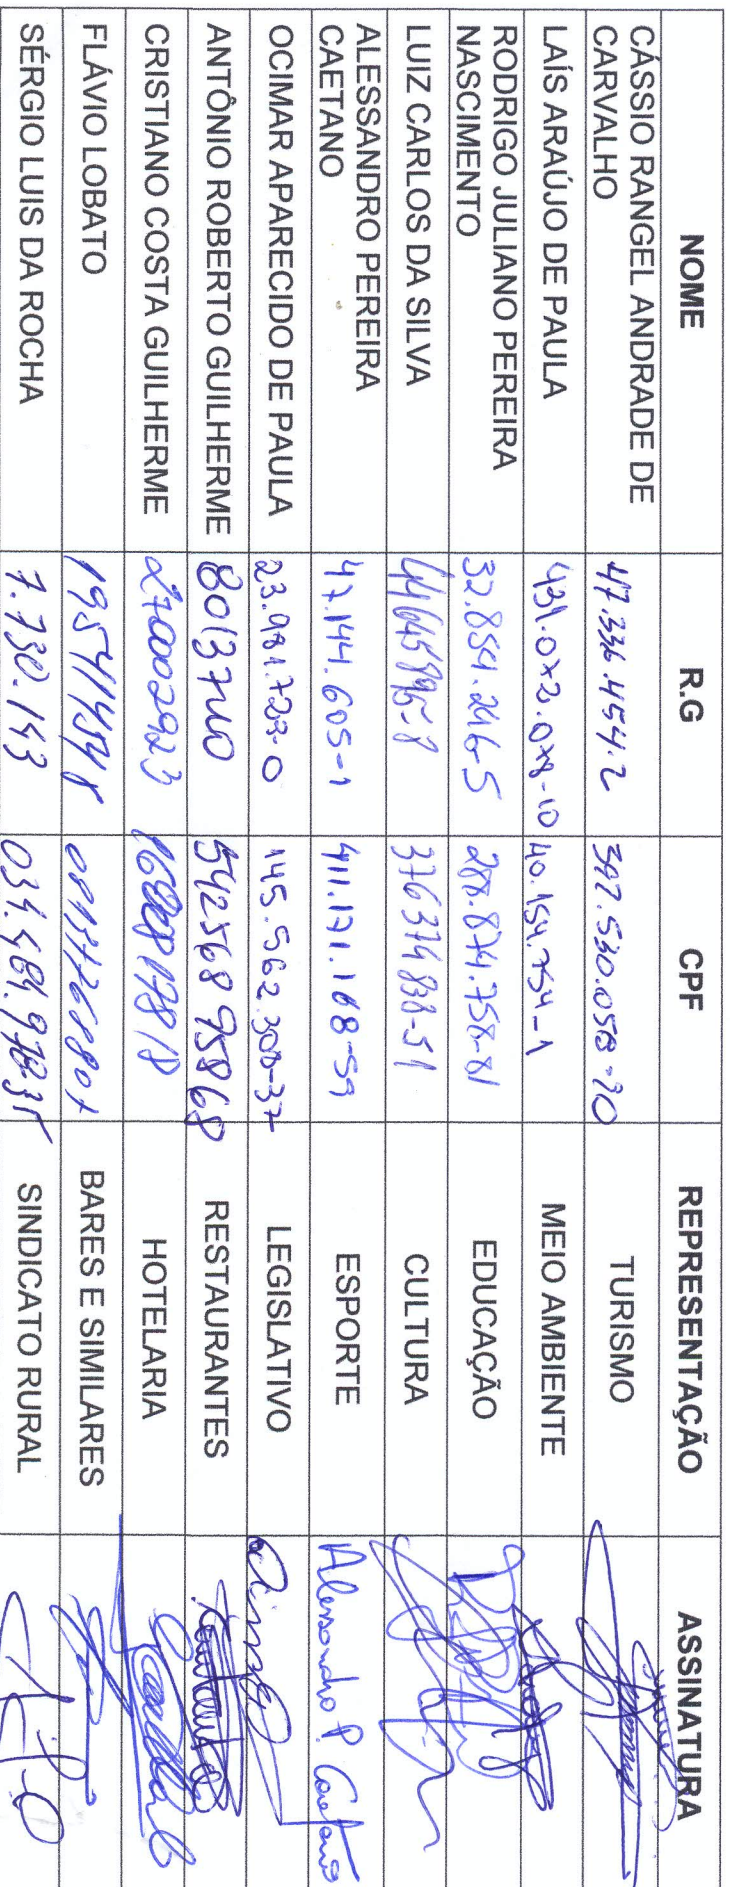 NOME R.G CPF REPRESENTAÇÃO ASSINATURA
CÁSSIO RANGEL ANDRADE DE
CARVALHO 47.336.454.2 397.530.058-70 TURISMO
LAÍS ARAÚJO DE PAULA 431.072.078-10 40.154.754-1 MEIO AMBIENTE
RODRIGO JULIANO PEREIRA
NASCIMENTO 32.854.246-5 288.874.758-81 EDUCAÇÃO
LUIZ CARLOS DA SILVA 44645896-8 376374838-51 CULTURA
ALESSANDRO PEREIRA
CAETANO 47.144.605-1 411.171.168-59 ESPORTE Alessandro P. Caetano
OCIMAR APARECIDO DE PAULA 23.981.723-0 145.562.308-37 LEGISLATIVO
ANTÔNIO ROBERTO GUILHERME 54256895868 RESTAURANTES
CRISTIANO COSTA GUILHERME HOTELARIA
FLÁVIO LOBATO BARES E SIMILARES
SÉRGIO LUIS DA ROCHA 7.730.143 SINDICATO RURAL